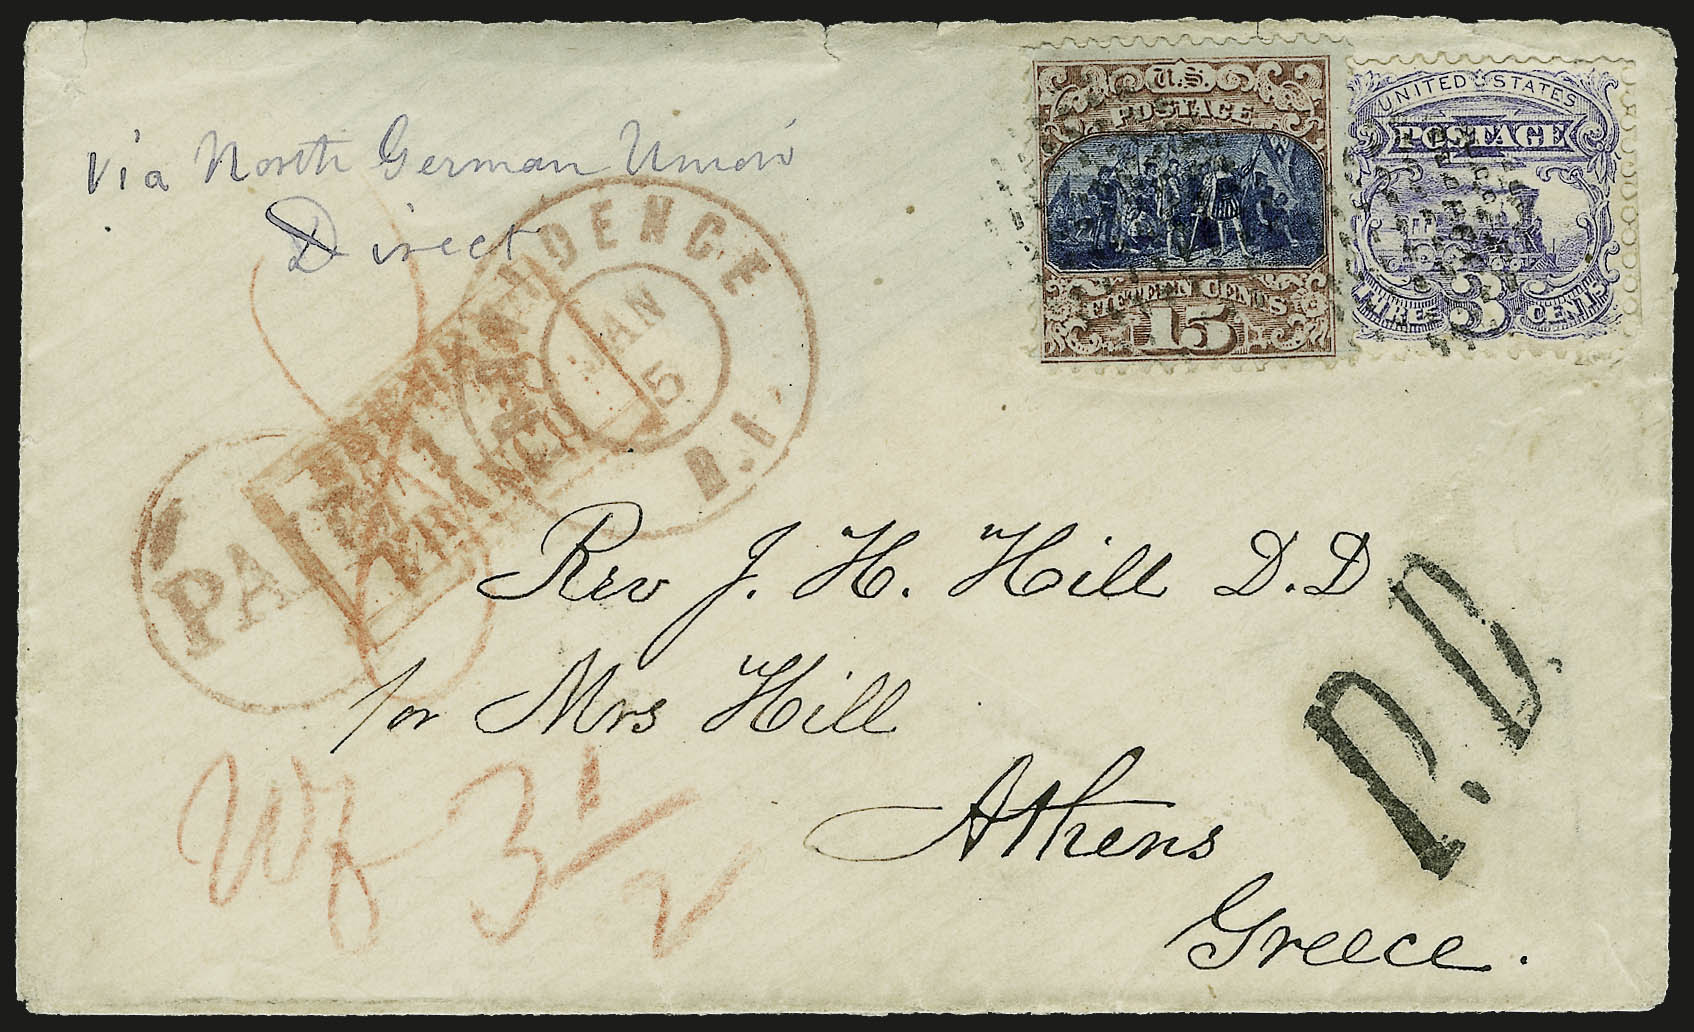 via North German Union
Direct
U.S.
POSTAGE
FIFTEEN CENTS
15
UNITED STATES
POSTAGE
THREE 3 CENTS
PROVIDENCE
JAN
5
R.I.
PAID
FRANCO
Rev J. H. Hill D.D
or Mrs Hill
Athens
Greece.
P.D.
Wf 3 1/2